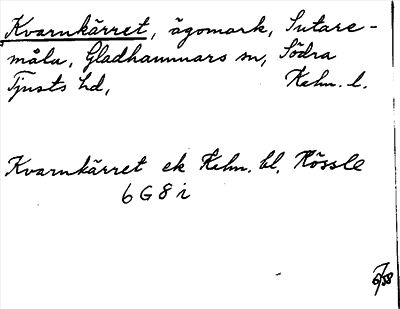 Kvarnkärret, ägomark, Sutare-
måla, Gladhammars sn, Södra
Tjusts hd, Kalm. l.
Kvarnkärret ek Kalm. bl. Hössle
6 G 8 i